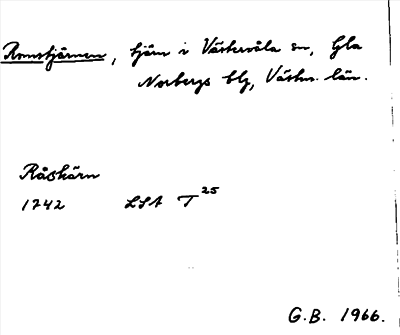 Romstjärnen, tjärn i Västervåla sn, Gla
Norbergs blg, Västm. län.
Råskärn
1742 LSA T 25
G.B. 1966.